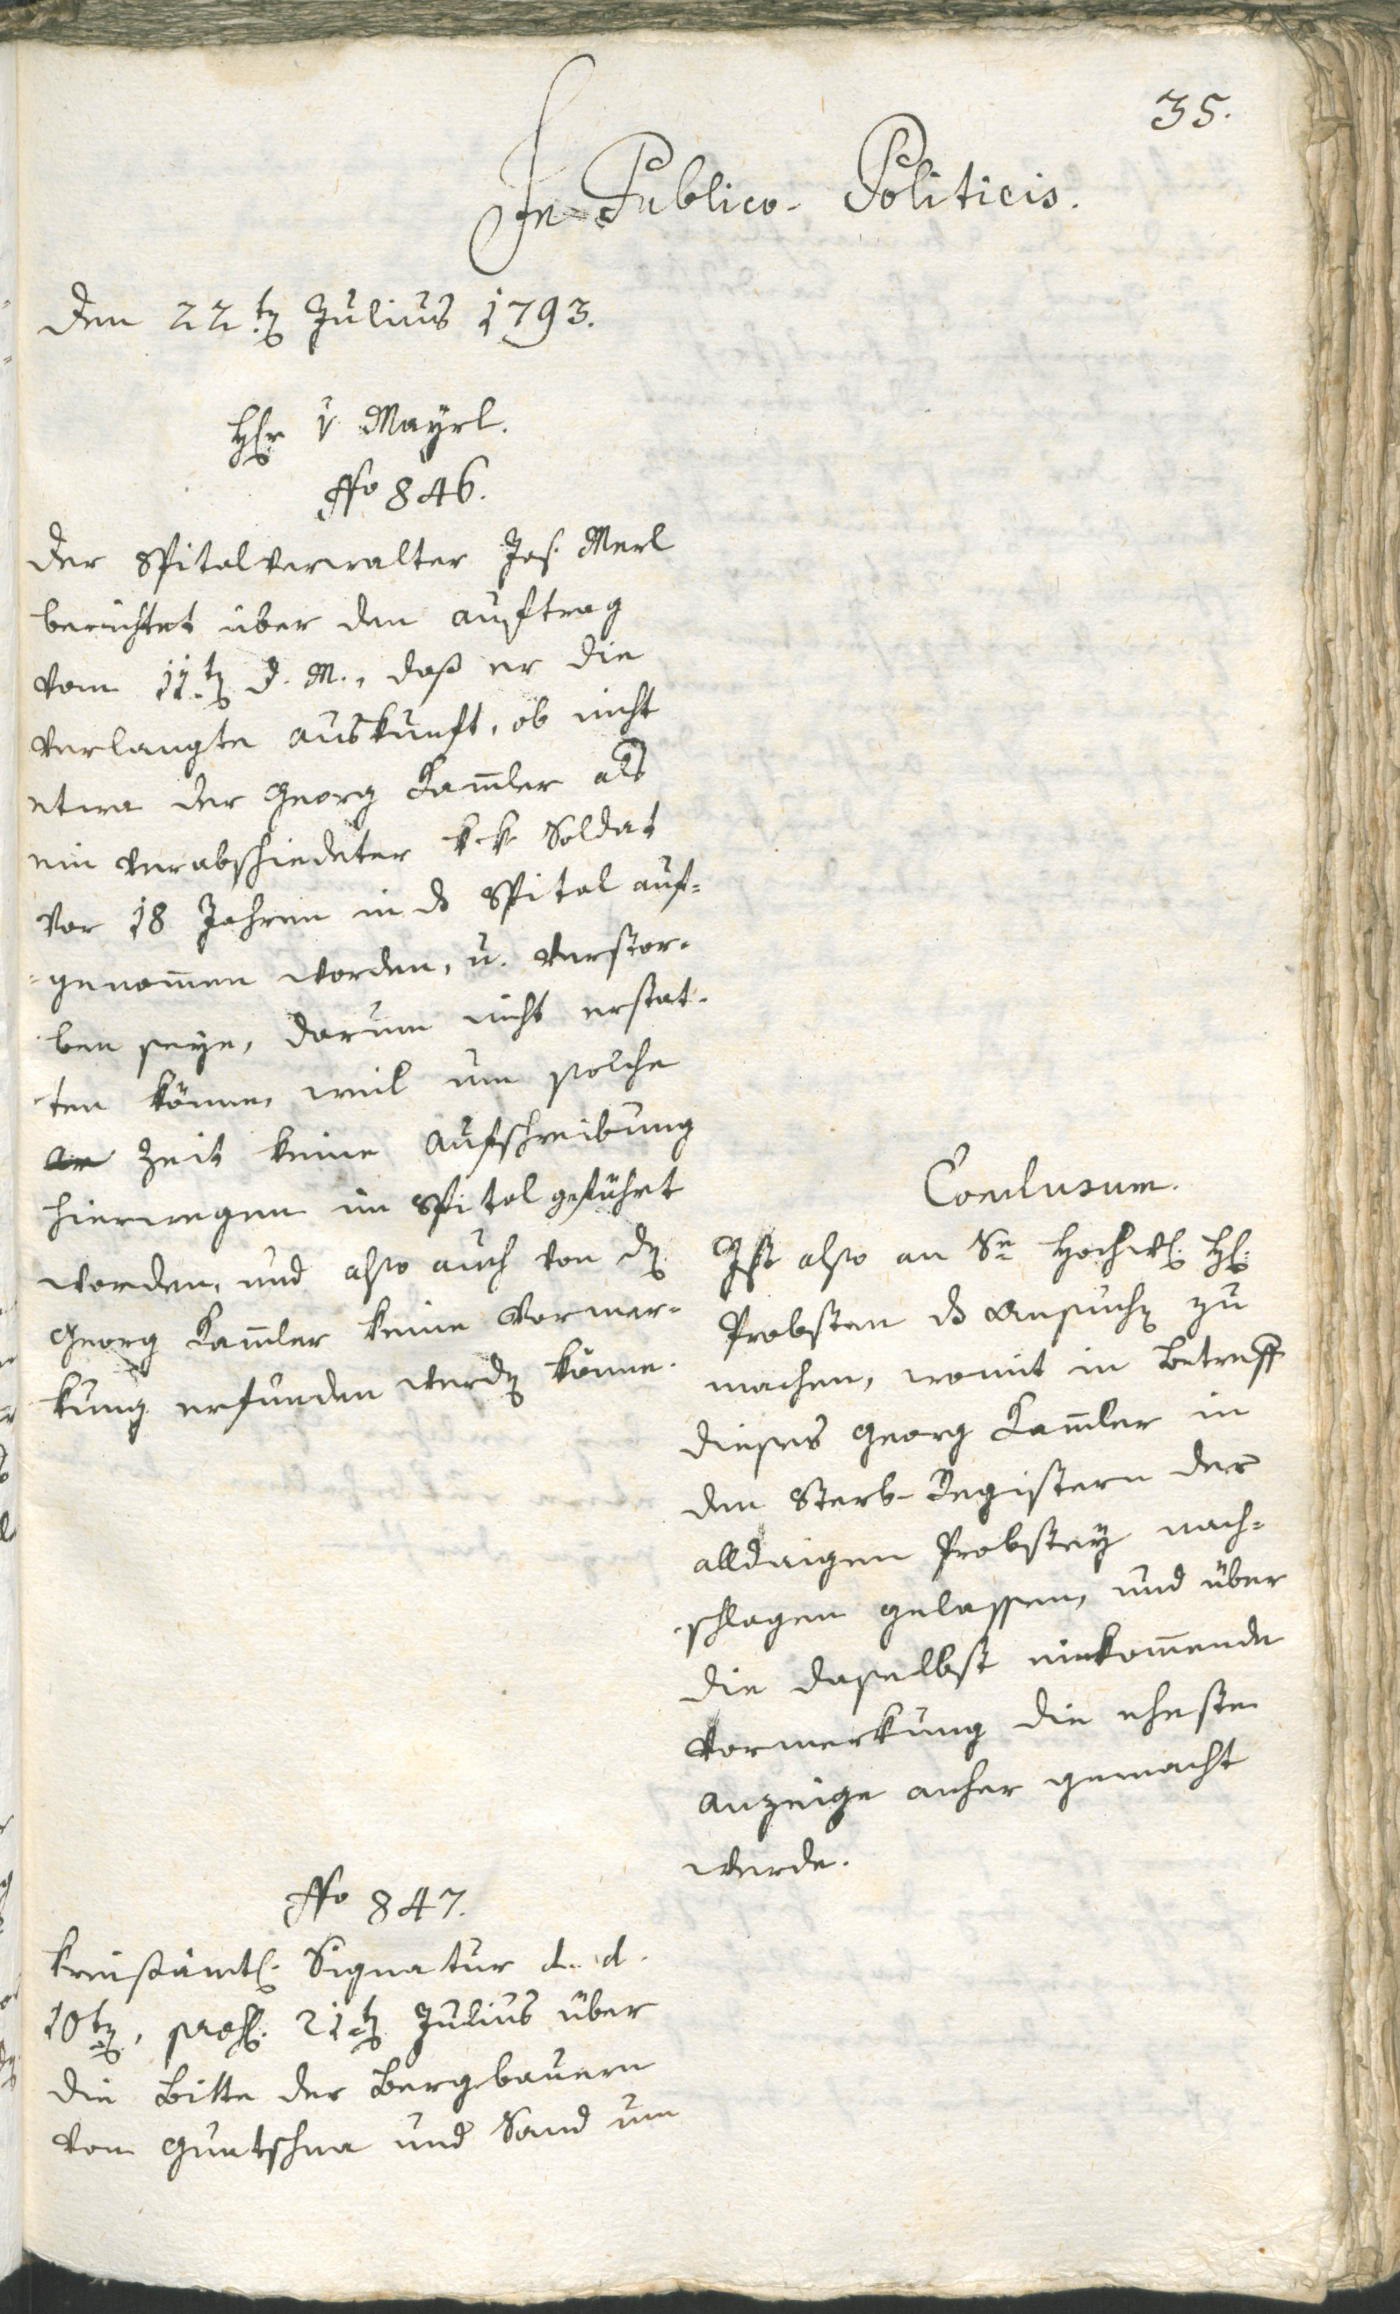 35.
In Publico-Politicis.
Den 22tn Julius 1793.
Hhr v Mayrl.
No 846.
Der Spitalverwalter Jos. Merl
berichtet über den auftrag
vom 11tn d. M., daß er die
verlangte auskunft, ob nicht
etwa der Georg Kam̄ler als
ein verabschiedeter k. k. Soldat
vor 18 Jahren in ds Spital auf=
=genom̄en worden, u. verstor-
ben seye, darum nicht erstat-
ten könne, weil um solche
Zeit keine aufschreibung
hierwegen im Spital geführt
worden, und also auch von dn
Georg Kam̄ler keine Vormer=
kung erfunden werdn könne.
Conclusum.
Ist also an Se Hochw. H:
Probsten ds Ansuchn zu
machen, womit in Betreff
dieses Georg Kam̄ler in
den Sterb-Registern der
alldaigen Probstey nach=
schlagen gelassen, und über
die daselbst einkom̄ende
Vormerkung die eheste
anzeige anher gemacht
werde.
No 847.
Kreisämtl. Signatur d. d.
10tn, praes. 21tn Julius über
die Bitte der Bergbauern
von Guntschna und Sand um